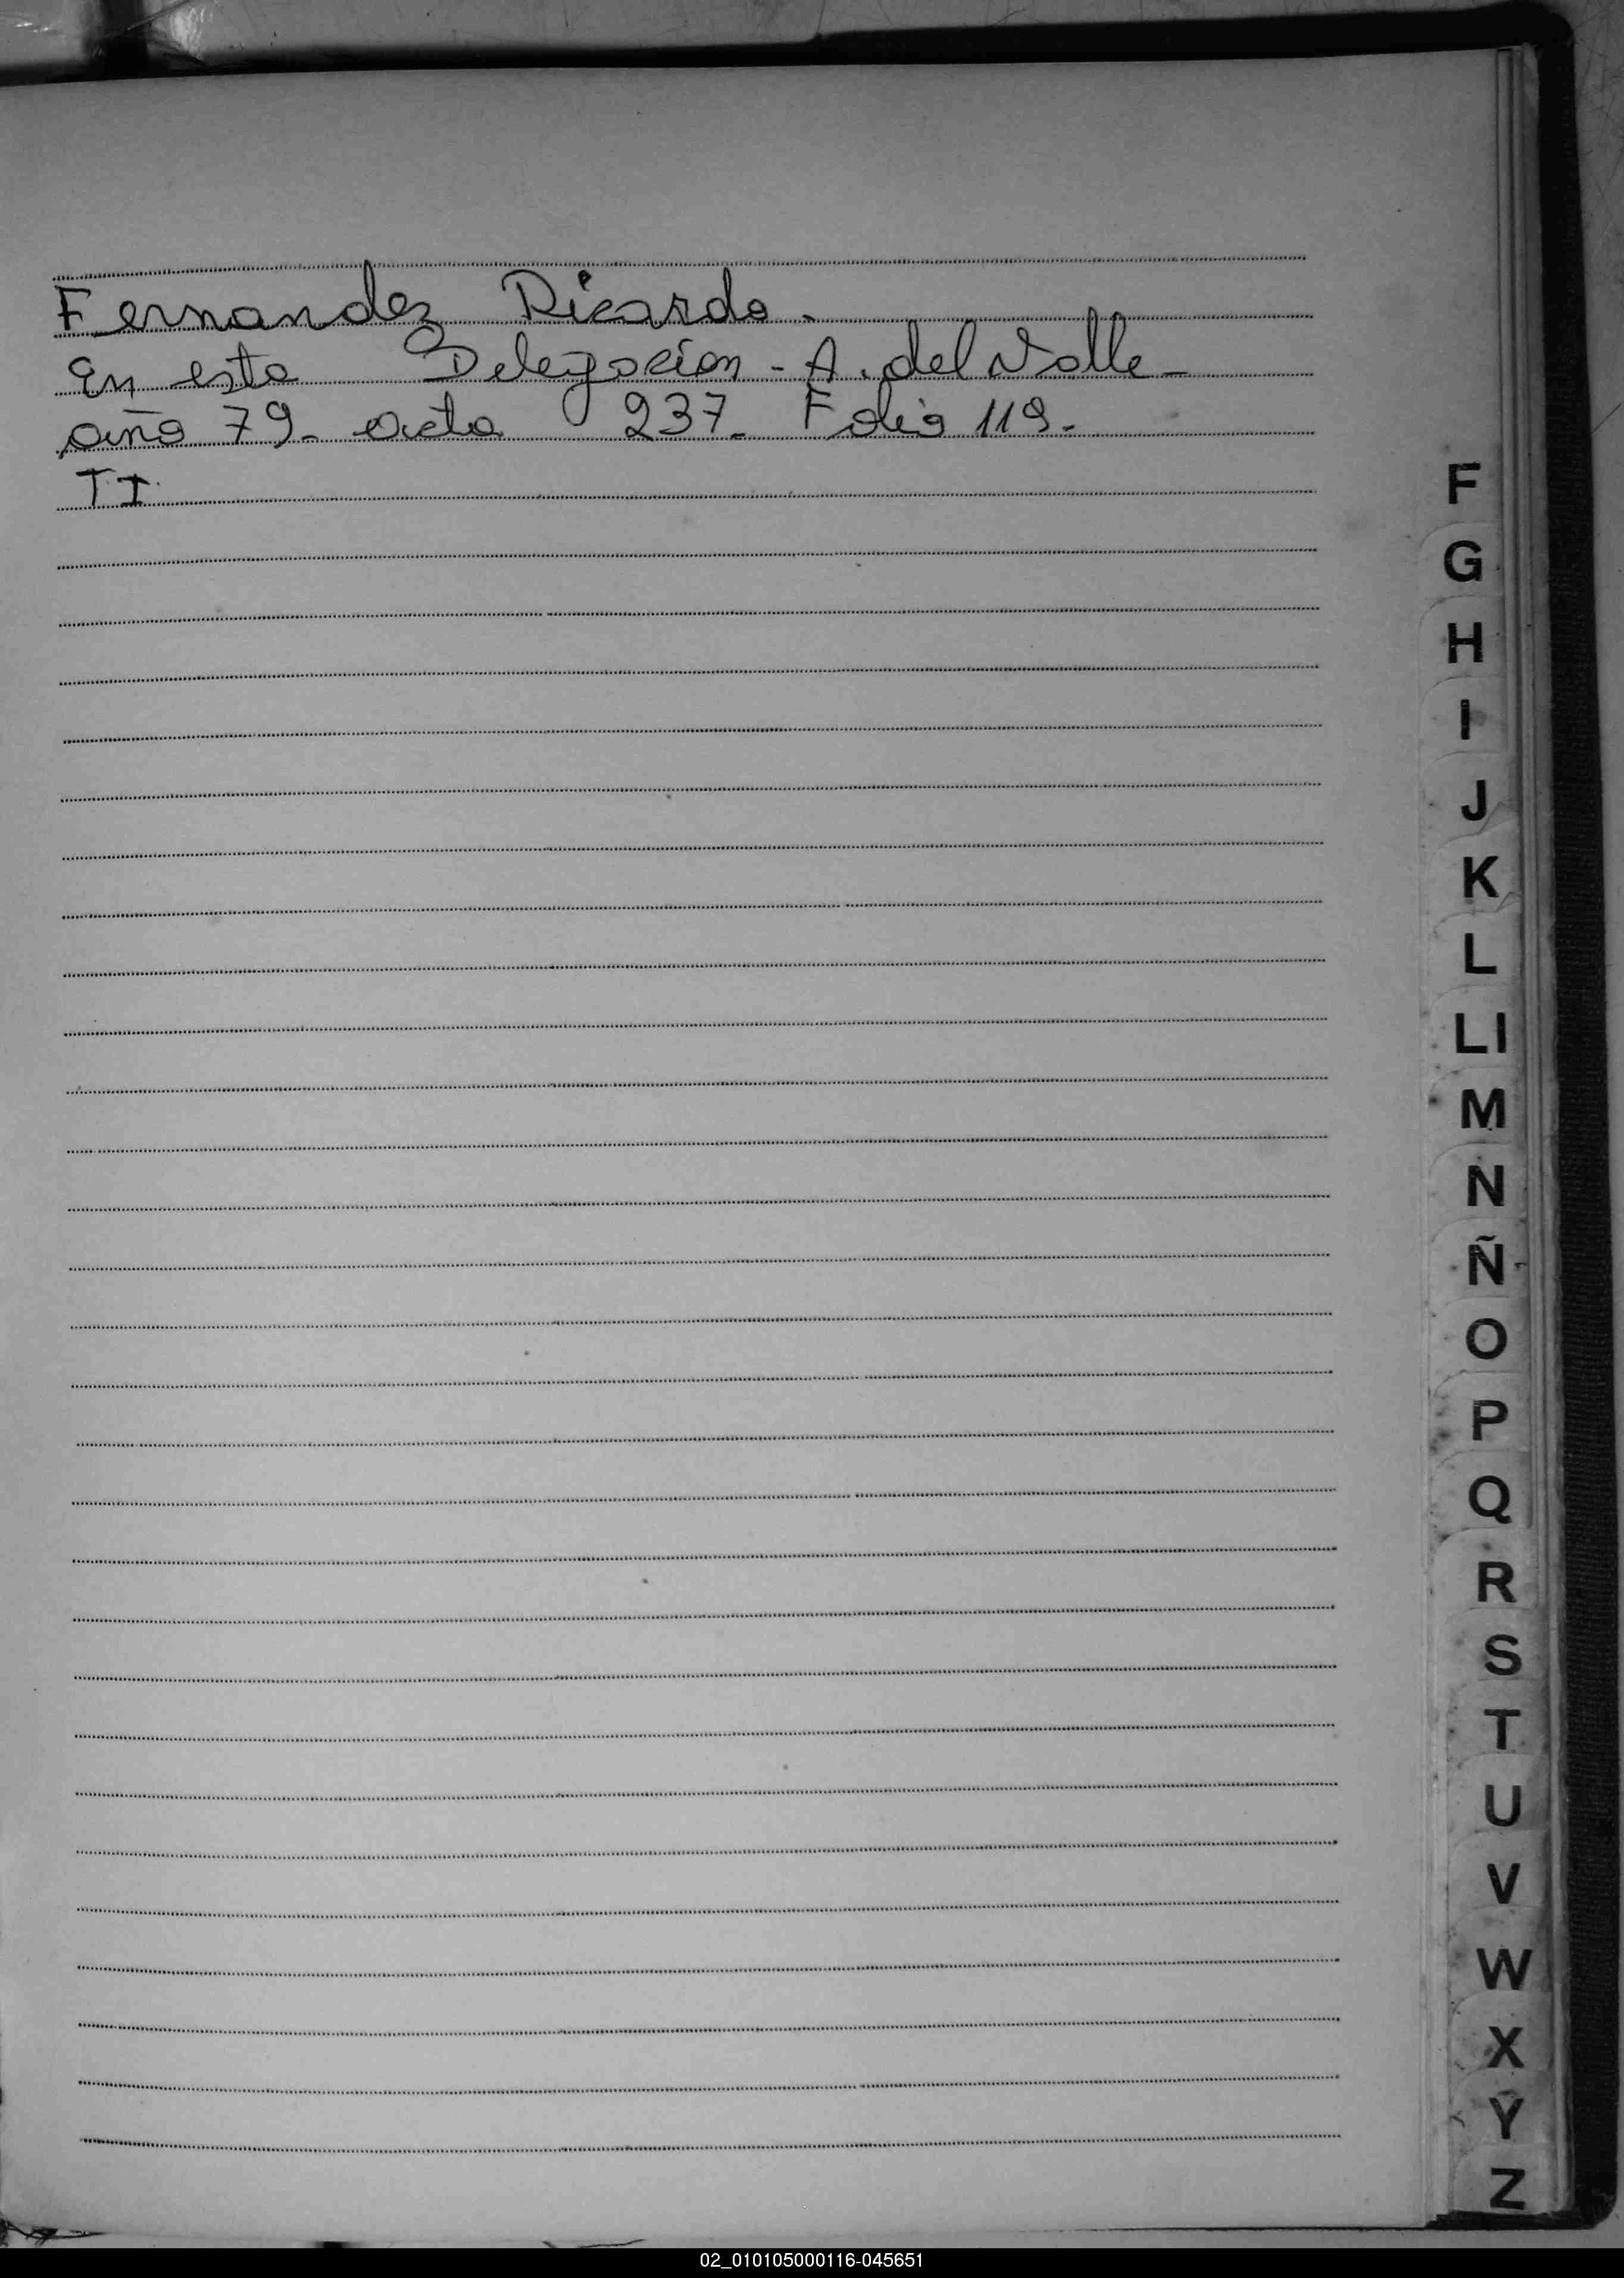 Fernandez Ricardo.
En esta Delegacion - A. del Valle -
año 79. acta 237. Folio 119.
T I
F
G
H
I
J
K
L
Ll
M
N
Ñ
O
P
Q
R
S
T
U
V
W
X
Y
Z
02_010105000116-045651